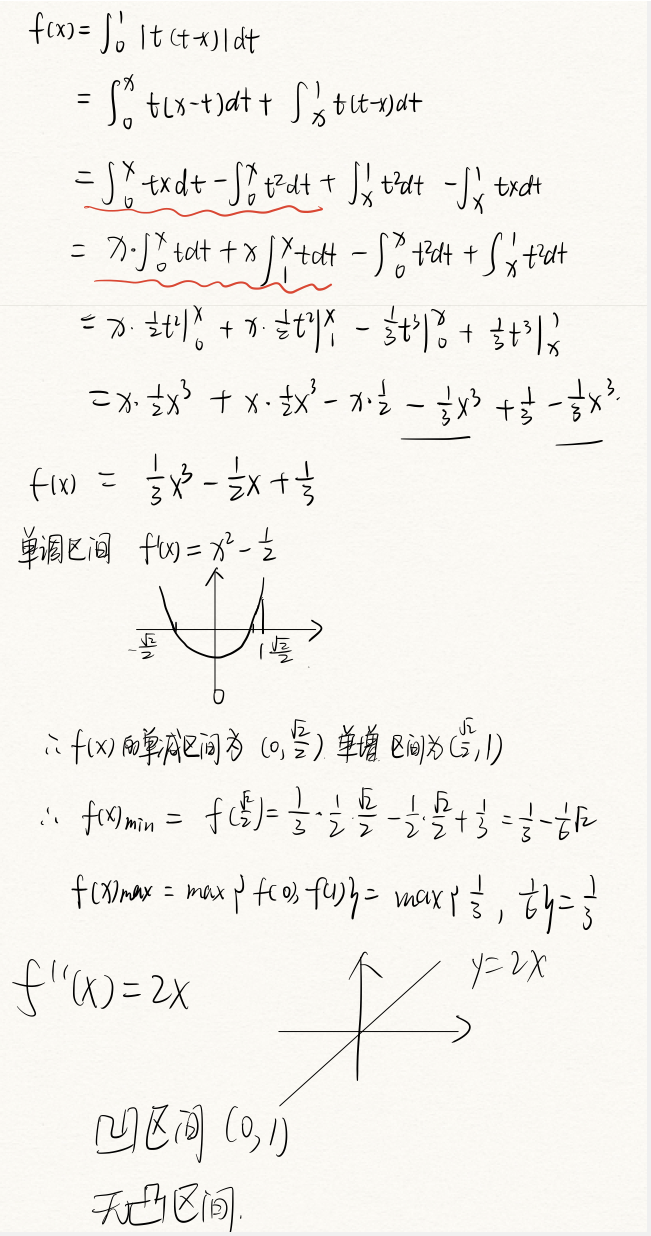 f(x) = ∫₀¹ |t(t-x)|dt
= ∫₀ˣ t(x-t)dt + ∫ₓ¹ t(t-x)dt
= ∫₀ˣ txdt - ∫₀ˣ t²dt + ∫ₓ¹ t²dt - ∫ₓ¹ txdt
= x·∫₀ˣ tdt + x∫₁ˣ tdt - ∫₀ˣ t²dt + ∫ₓ¹ t²dt
= x·½t²|₀ˣ + x·½t²|₁ˣ - ⅓t³|₀ˣ + ⅓t³|ₓ¹
= x·½x³ + x·½x³ - x·½ - ⅓x³ + ⅓ - ⅓x³.
f(x) = ⅓x³ - ½x + ⅓
单调区间 f'(x) = x² - ½
-√2/2 1 √2/2
0
∴ f(x)的单减区间为 (0, √2/2) 单增区间为(√2/2, 1)
∴ f(x)min = f(√2/2) = ⅓·½·√2/2 - ½·√2/2 + ⅓ = ⅓ - ⅙√2
f(x)max = max{f(0), f(1)} = max{⅓, ⅙} = ⅓
f''(x) = 2x
y=2x
凹区间 (0,1)
无凸区间.